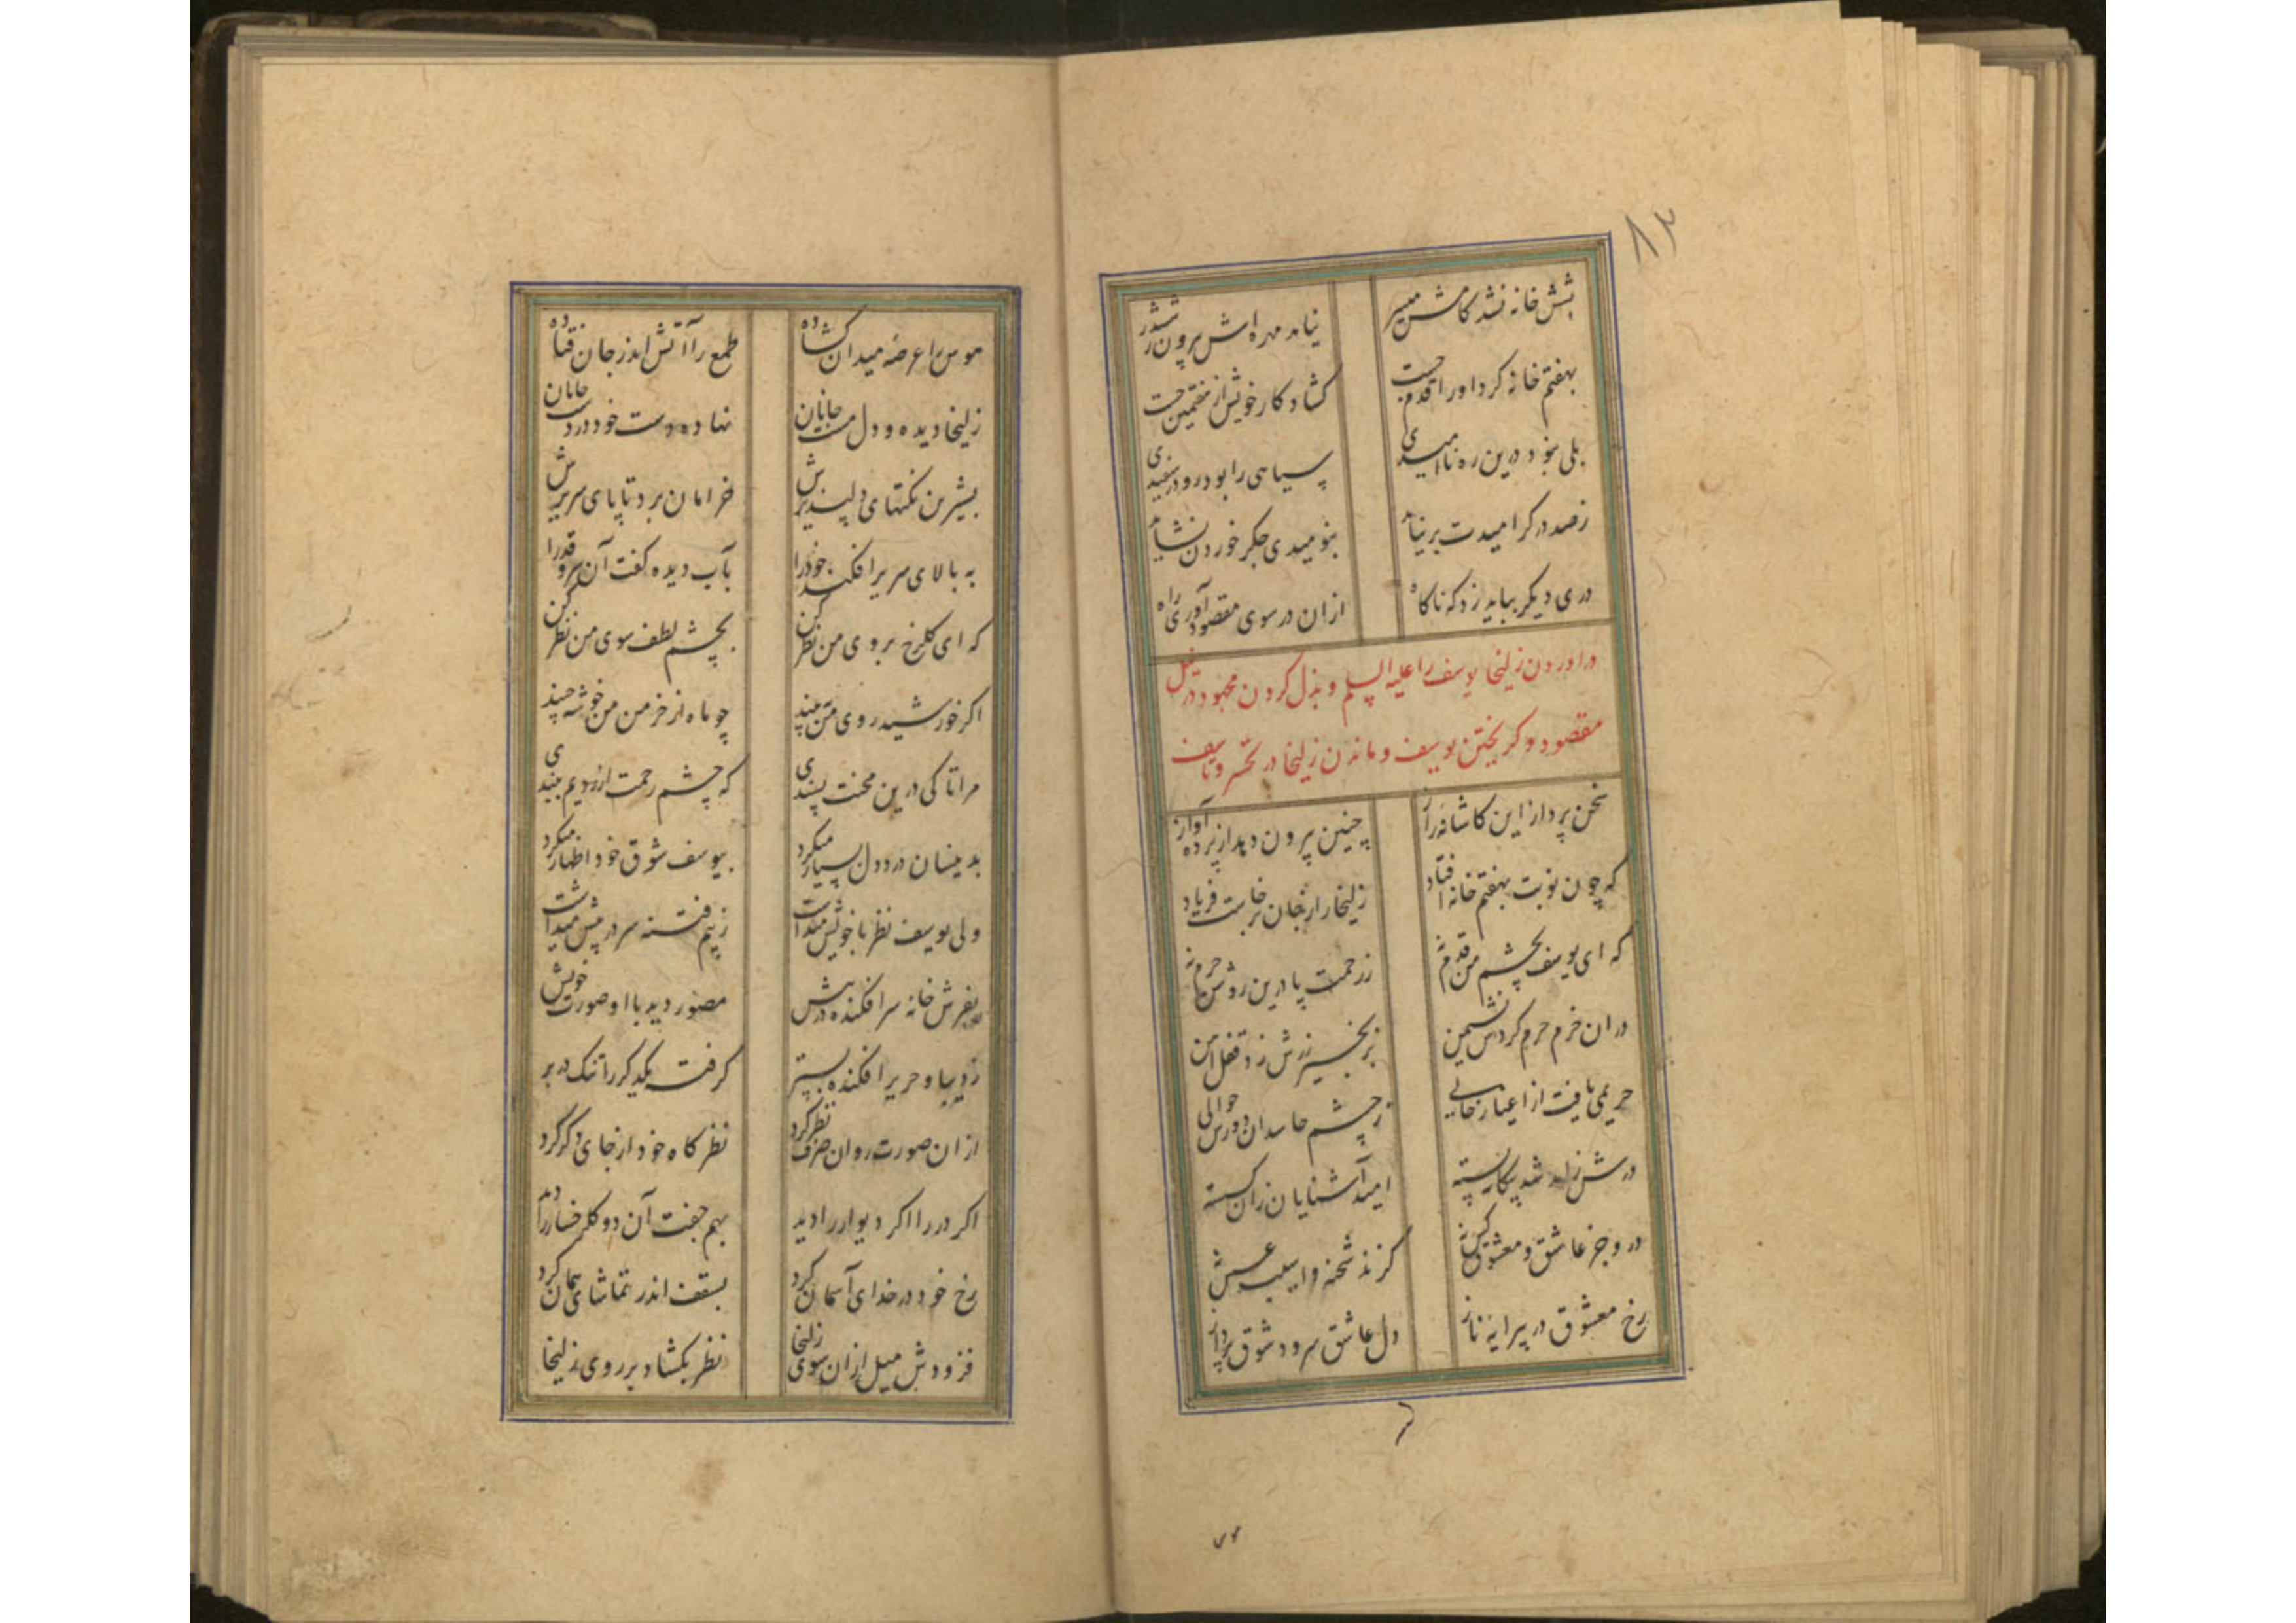 ۸۳
بشش خانه نشد کامش میسر
نیامد مهره اش بیرون ز ششدر
بهفتم خانه کرد او را قدم چست
کشاد کار خویش از هفتمین جست
بلی نبود درین ره ناامیدی
سیاهی را بود رو در سفیدی
ز صد در کر امیدت بر نیاید
بنومیدی جکر خوردن نشاید
دری دیکر بباید زد که ناکاه
از ان در سوی مقصود آوری راه
در اوردن زلیخا یوسف را علیه السلم و بذل کردن مجهود در نیل
مقصود و کریختن یوسف و ماندن زلیخا در تحسر و تاسف
سخن پرداز این کاشانه راز
چنین بیرون دهد از پرده آواز
که چون نوبت بهفتم خانه افتاد
زلیخا را ز جان برخاست فریاد
که ای یوسف بچشم من قدم نه
ز رحمت پا درین روشن حرم نه
در ان خرم حرم کردش نشیمن
بزنجیر زرش زد قفل آهن
حریمی یافت از اغیار خالی
ز چشم حاسدان دورش حوالی
درش ز شد بیکانه بسته
امید آشنایان زان کسسته
درو جز عاشق و معشوق کس نه
کزند شحنه و اسیب عسس نه
رخ معشوق در پیرایه ناز
دل عاشق سرود شوق پرداز
هوس را عرصه میدان کشاده
طمع را آتش اندر جان فتاده
زلیخا دیده و دل مست جانان
نهاده دست خود در دست جانان
بشیرین نکتهای دلپذیرش
خرامان برد تا پای سریرش
به بالای سریر افکند خود را
بآب دیده کفت آن سرو قد را
که ای کلرخ بروی من نظر کن
بچشم لطف سوی من نظر کن
اکر خورشید روی من ببیند
چو ماه از خرمن من خوشه چیند
مرا تا کی درین محنت پسندی
که چشم رحمت از رویم ببندی
بدینسان درد دل بسیار میکرد
بیوسف شوق خود اظهار میکرد
ولی یوسف نظر با خویش میداشت
ز بیم فتنه سر در پیش میداشت
بفرش خانه سر افکنده در پیش
مصور دید با او صورت خویش
ز دیبا و حریر افکنده بستر
کرفته یکدکر را تنک در بر
از ان صورت روان صرف نظر کرد
نظرکاه خود از جای دکر کرد
اکر در را اکر دیوار را دید
بهم جفت آن دو کلرخسار را دید
رخ خود در خدای آسمان کرد
بسقف اندر تماشای همان کرد
فزودش میل از ان سوی زلیخا
نظر بکشاد بر روی زلیخا